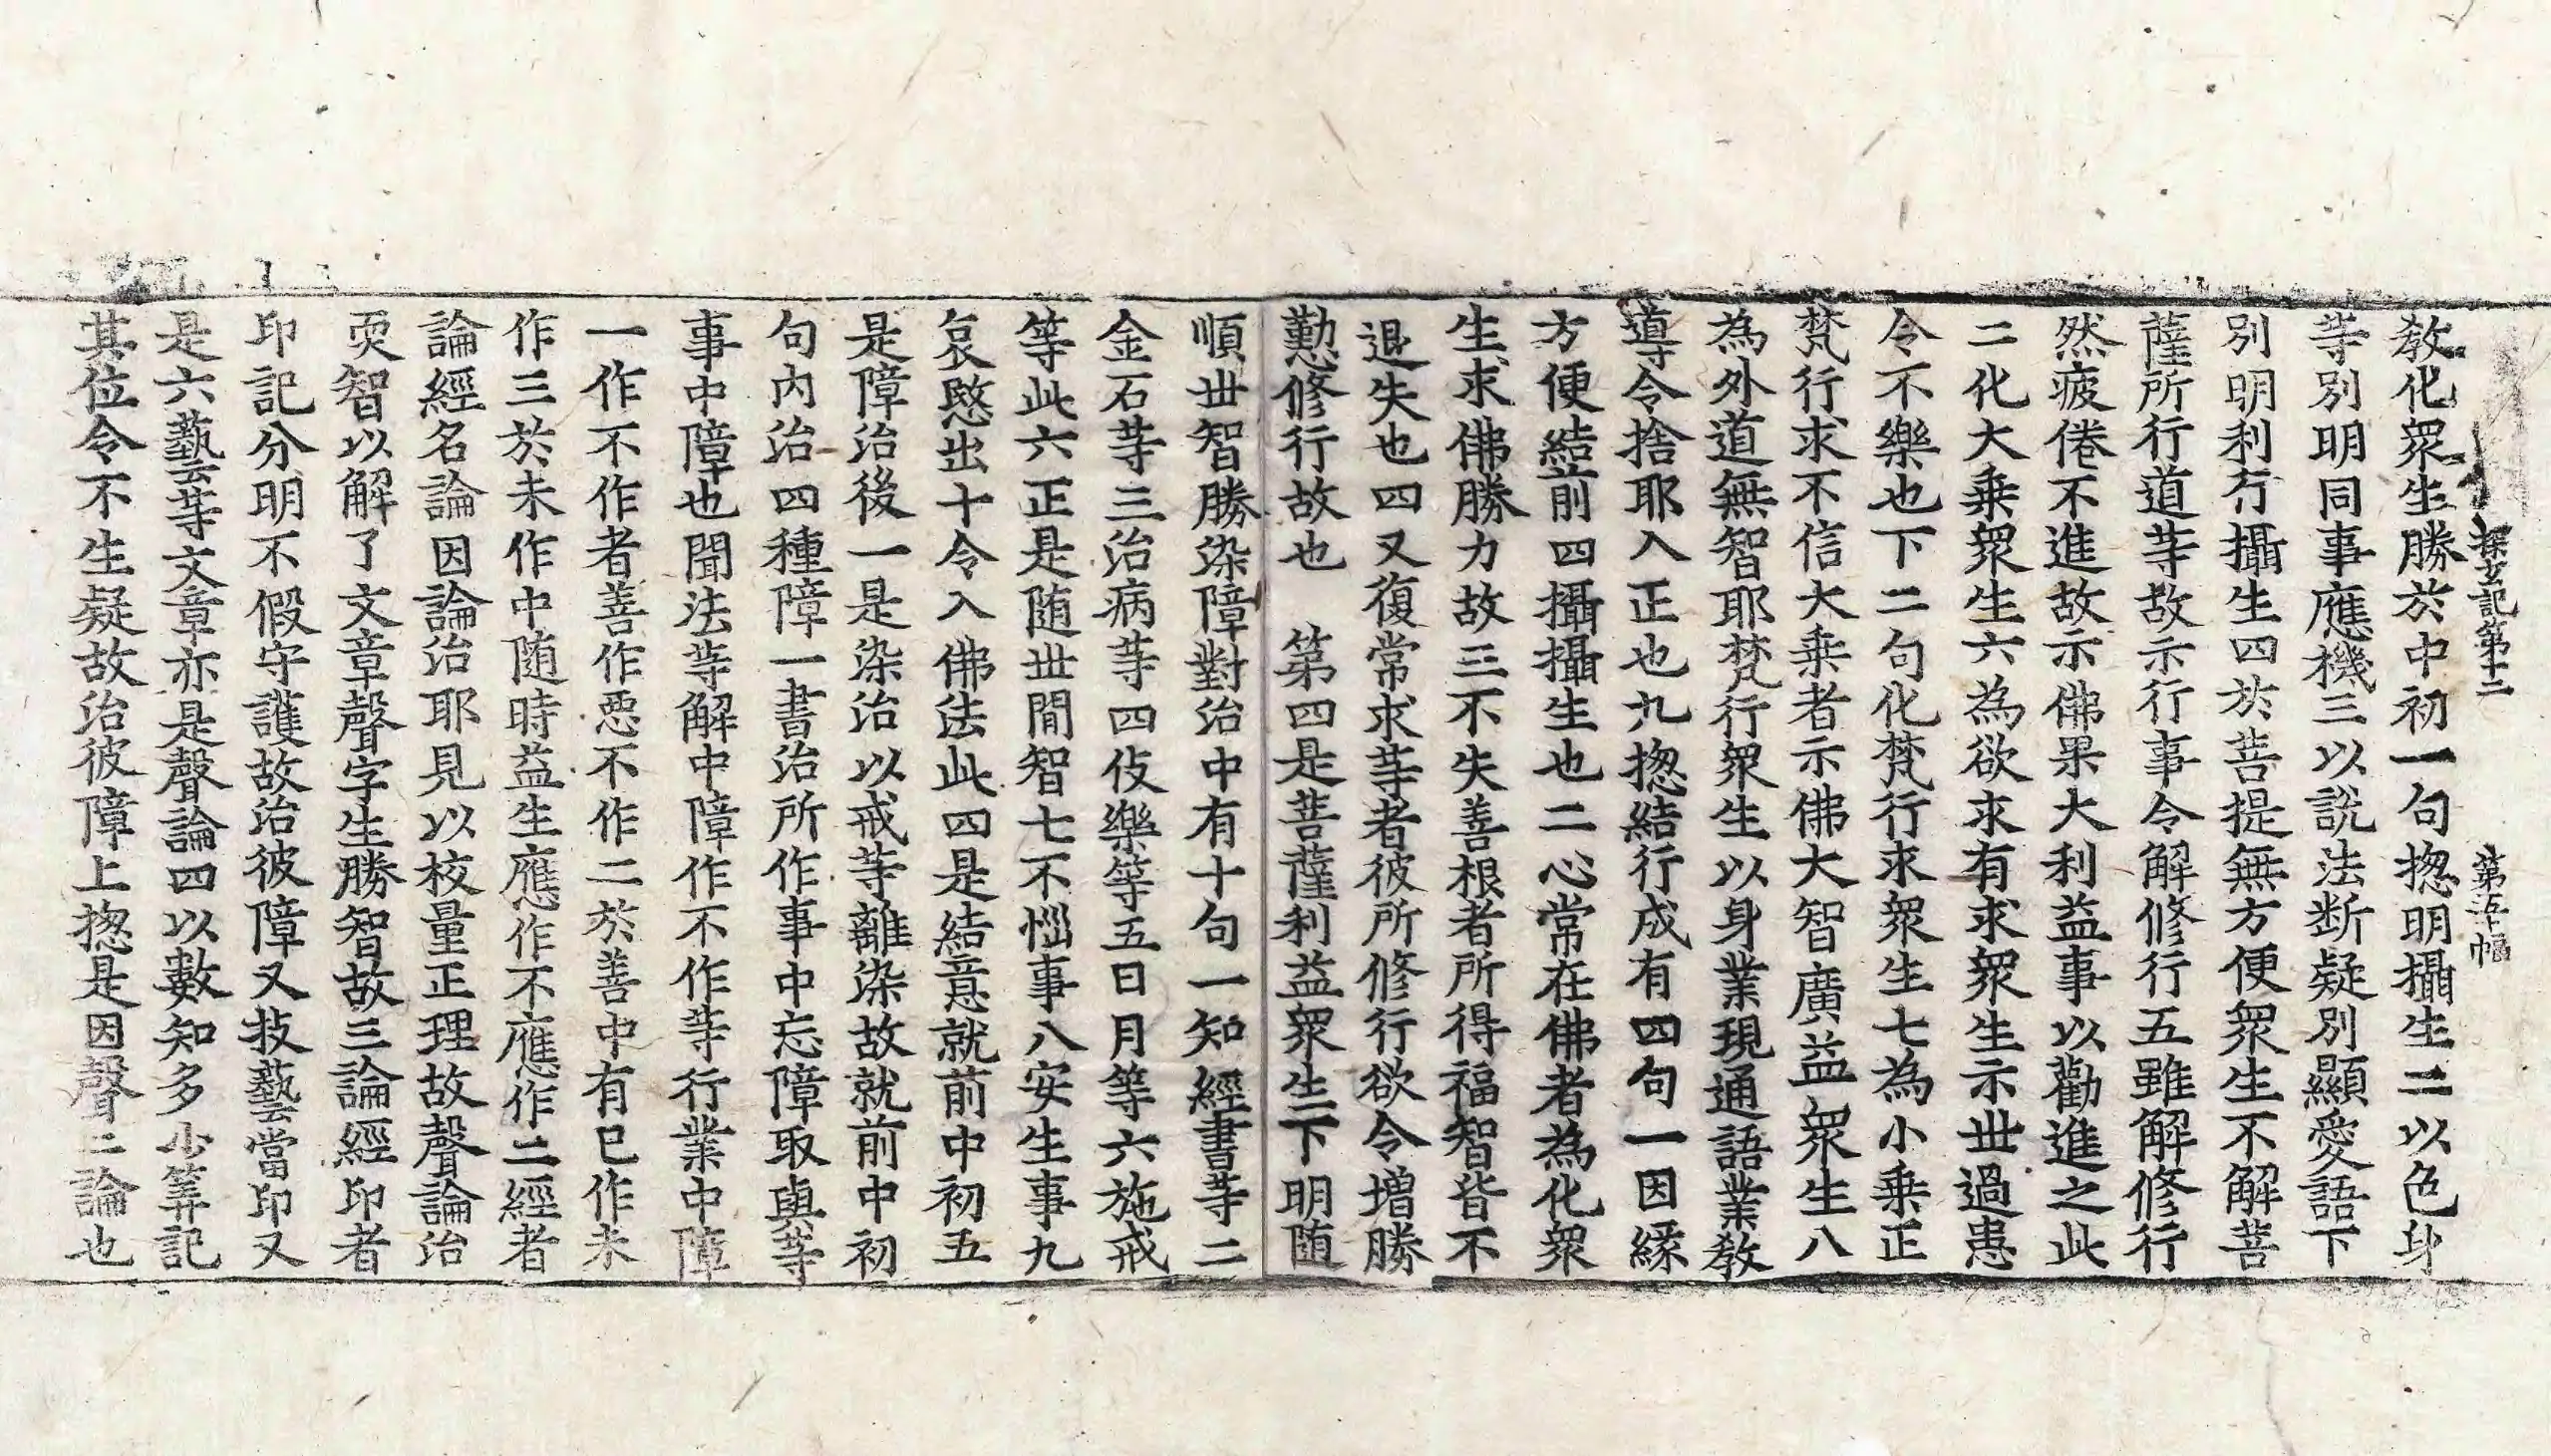 探玄記第十二　第五十幅
教化衆生勝於中初一句揔明攝生二以色身
等別明同事應機三以說法断疑別顯愛語下
別明利行攝生四於菩提無方便衆生不解菩
薩所行道䓁故示行事令解修行五雖解修行
然疲倦不進故示佛果大利益事以勸進之此
二化大乗衆生六為欲求有求衆生示丗過患
令不樂也下二句化梵行求衆生七為小乗正
梵行求不信大乗者示佛大智廣益衆生八
為外道無智耶梵行衆生以身業現通語業教
導令捨耶入正也九揔結行成有四句一因緣
方便結前四攝攝生也二心常在佛者為化衆
生求佛勝力故三不失善根者所得福智皆不
退失也四又復常求䓁者彼所修行欲令增勝
懃修行故也　第四是菩薩利益衆生下明随
順丗智勝染障對治中有十句一知經書等二
金石䓁三治病等四伎樂等五日月等六施戒
等此六正是随丗間智七不惱事八安生事九
哀愍出十令入佛法此四是結意就前中初五
是障治後一是染治以戒等離染故就前中初
句內治四種障一書治所作事中忘障取與等
事中障也聞法等解中障作不作等行業中障
一作不作者善作悪不作二於善中有已作未
作三於未作中随時益生應作不應作二經者
論經名論因論治耶見以校量正理故聲論治
耎智以解了文章聲字生勝智故三論經印者
印記分明不假守護故治彼障又技藝當印又
是六藝䓁文章亦是聲論四以數知多少筭記
其位令不生疑故治彼障上揔是因聲二論也